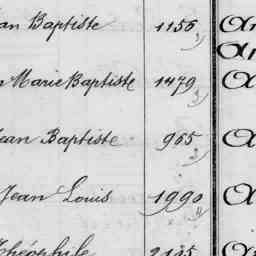 an Baptiste 1156 An
Marie Baptiste 1479 A
ean Baptiste 965 A
Jean Louis 1990 A
Théophile 2135